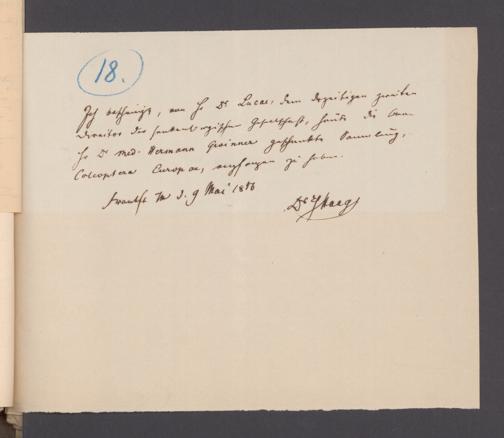 18.
Ich bescheinige, von Hr Dr Lucae, dem derzeitigen zweiten
Director der Senckenbergischen Gesellschaft, heute die von
Hr Dr med. Hermann geschenkte Sammlung,
Coleoptera Europae, empfangen zu haben.
Frankft M d. 9 Mai
Dr Haag